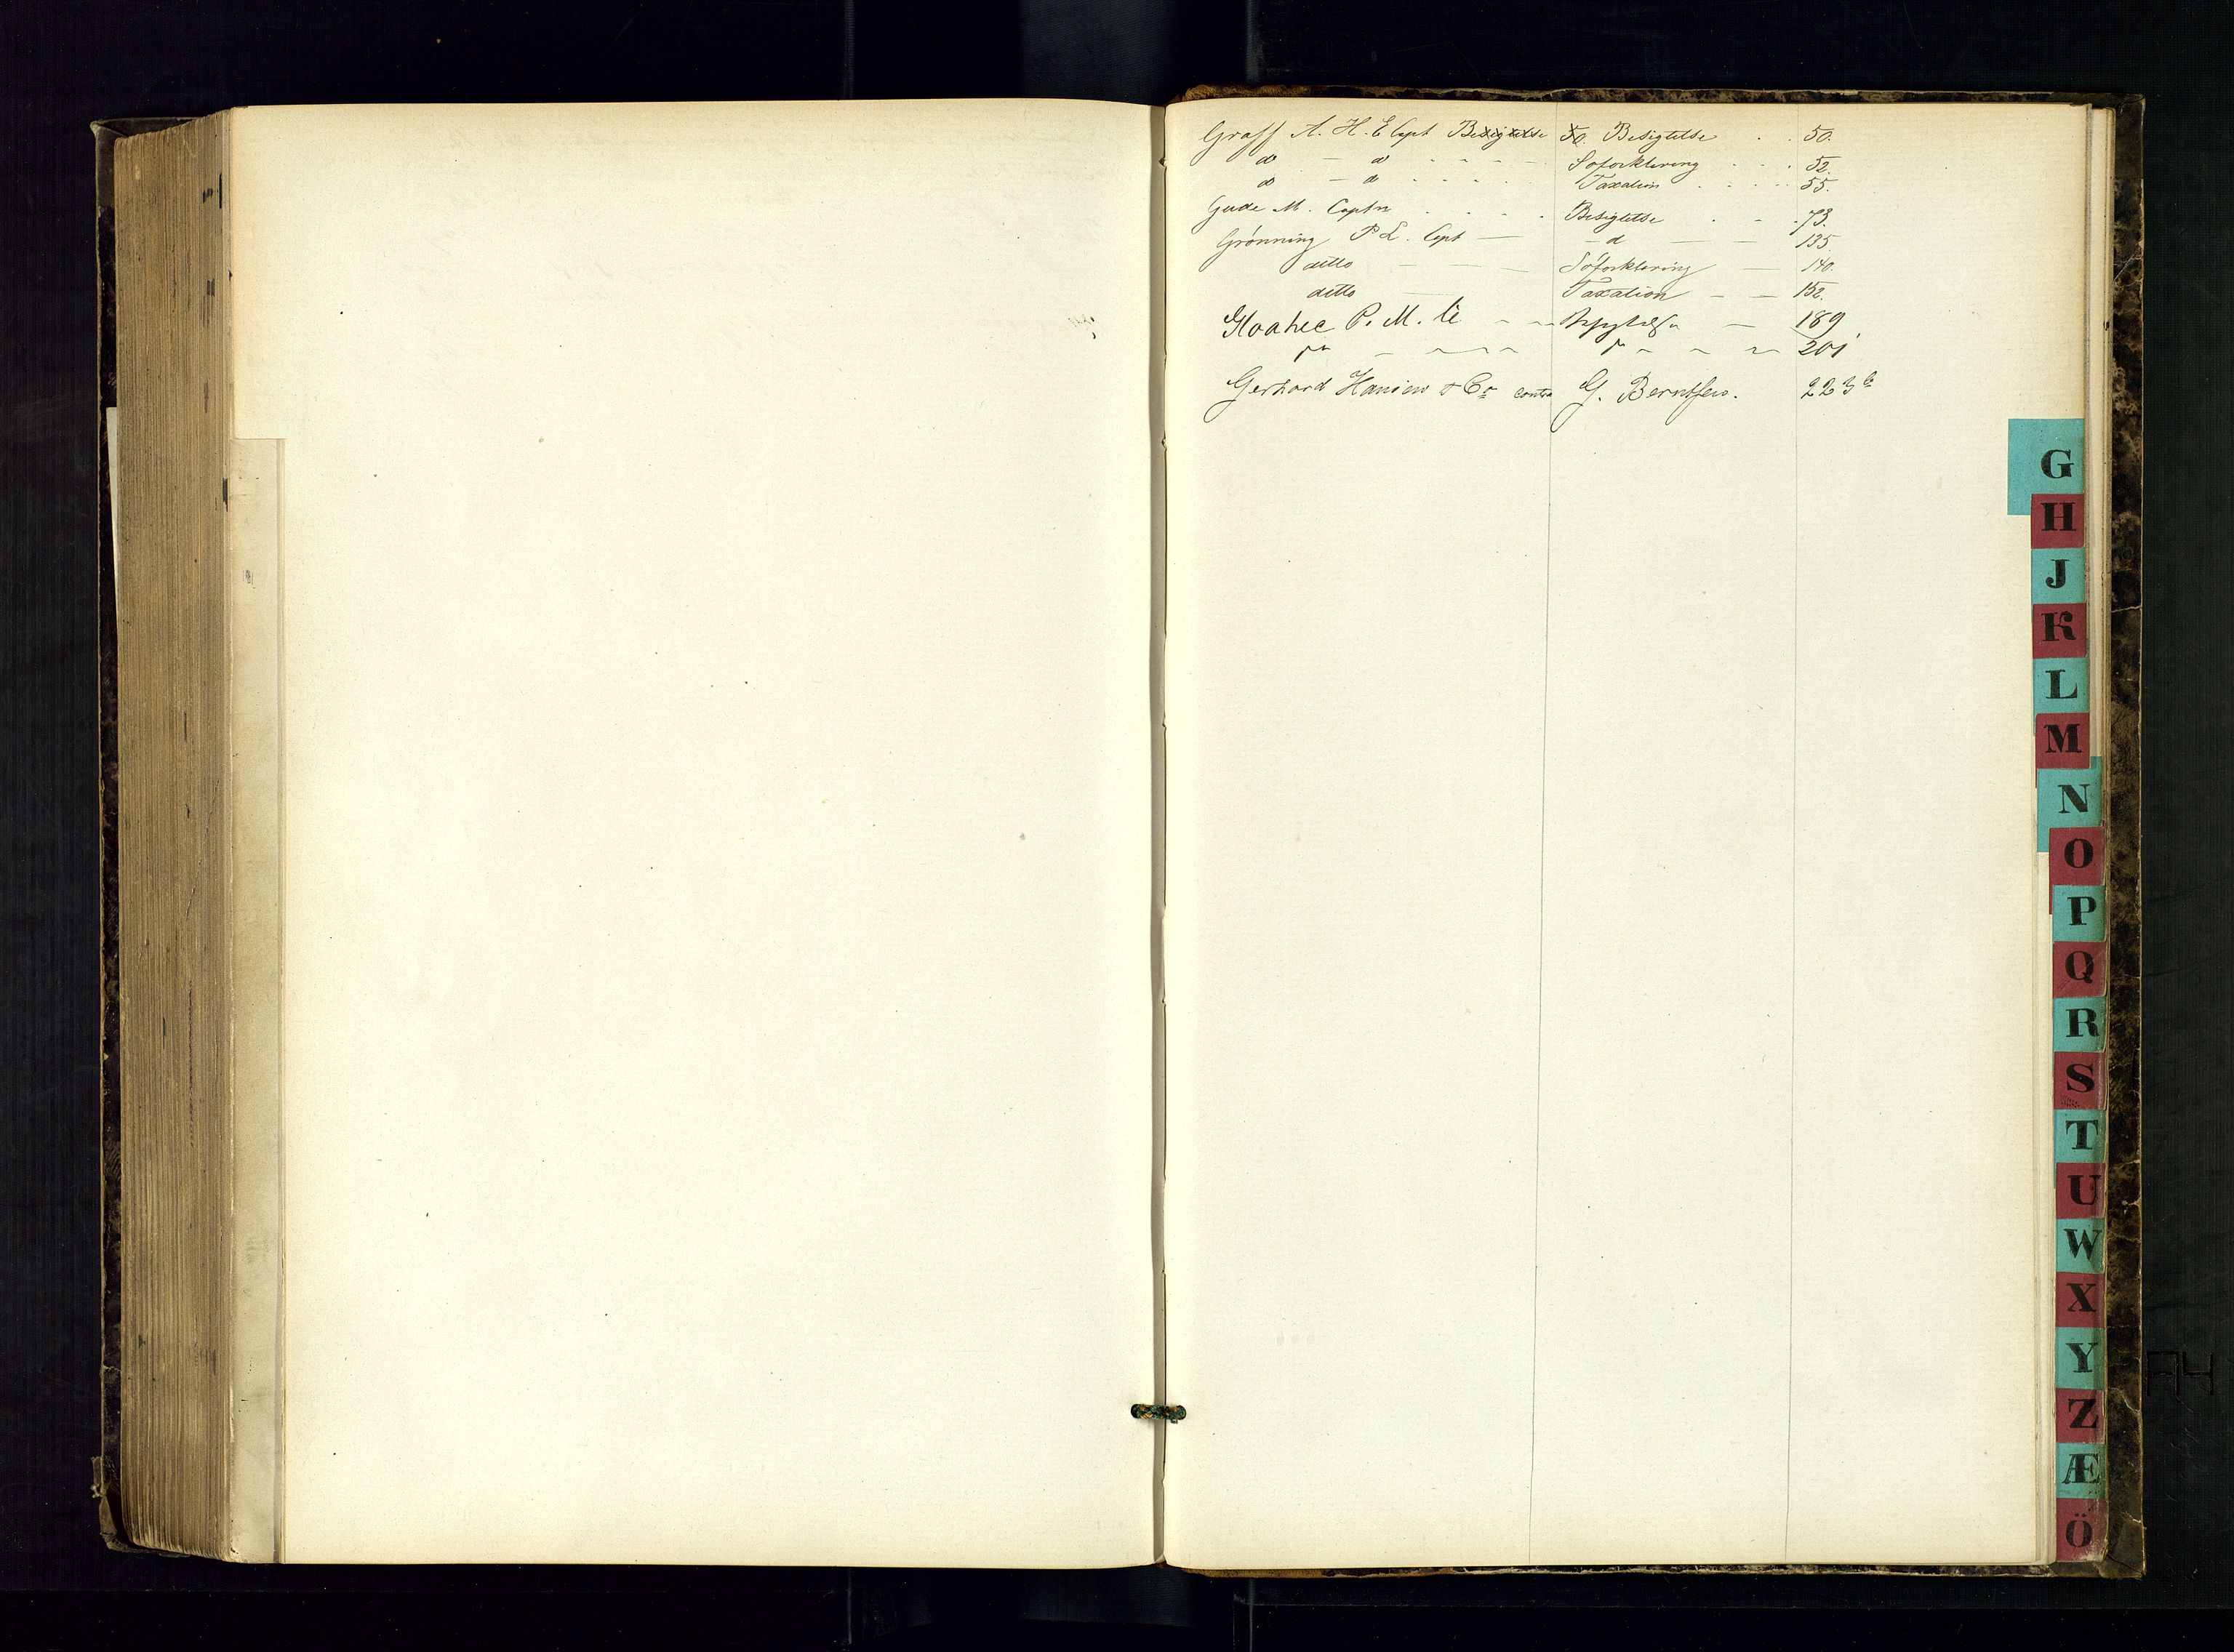 Graff A. H. E Capt Besigtelse 50. Besigtelse . . 50.
do — do . . . . . Søforklaring . . . 52.
do — do . . . . Taxation . . . . 55.
Gude M. Captn . . . . Besigtelse . . . 73.
Grønning P L. Capt — — d — — 135.
ditto — — — Søforklaring — 140.
ditto — Taxation — — 152.
Gloahec P. M. le — — — 189
— — — — — — 201
Gerhard Hansen & Co contra G. Berntsen. 223 b
G
H
J
K
L
M
N
O
P
Q
R
S
T
U
W
X
Y
Z
Æ
Ö